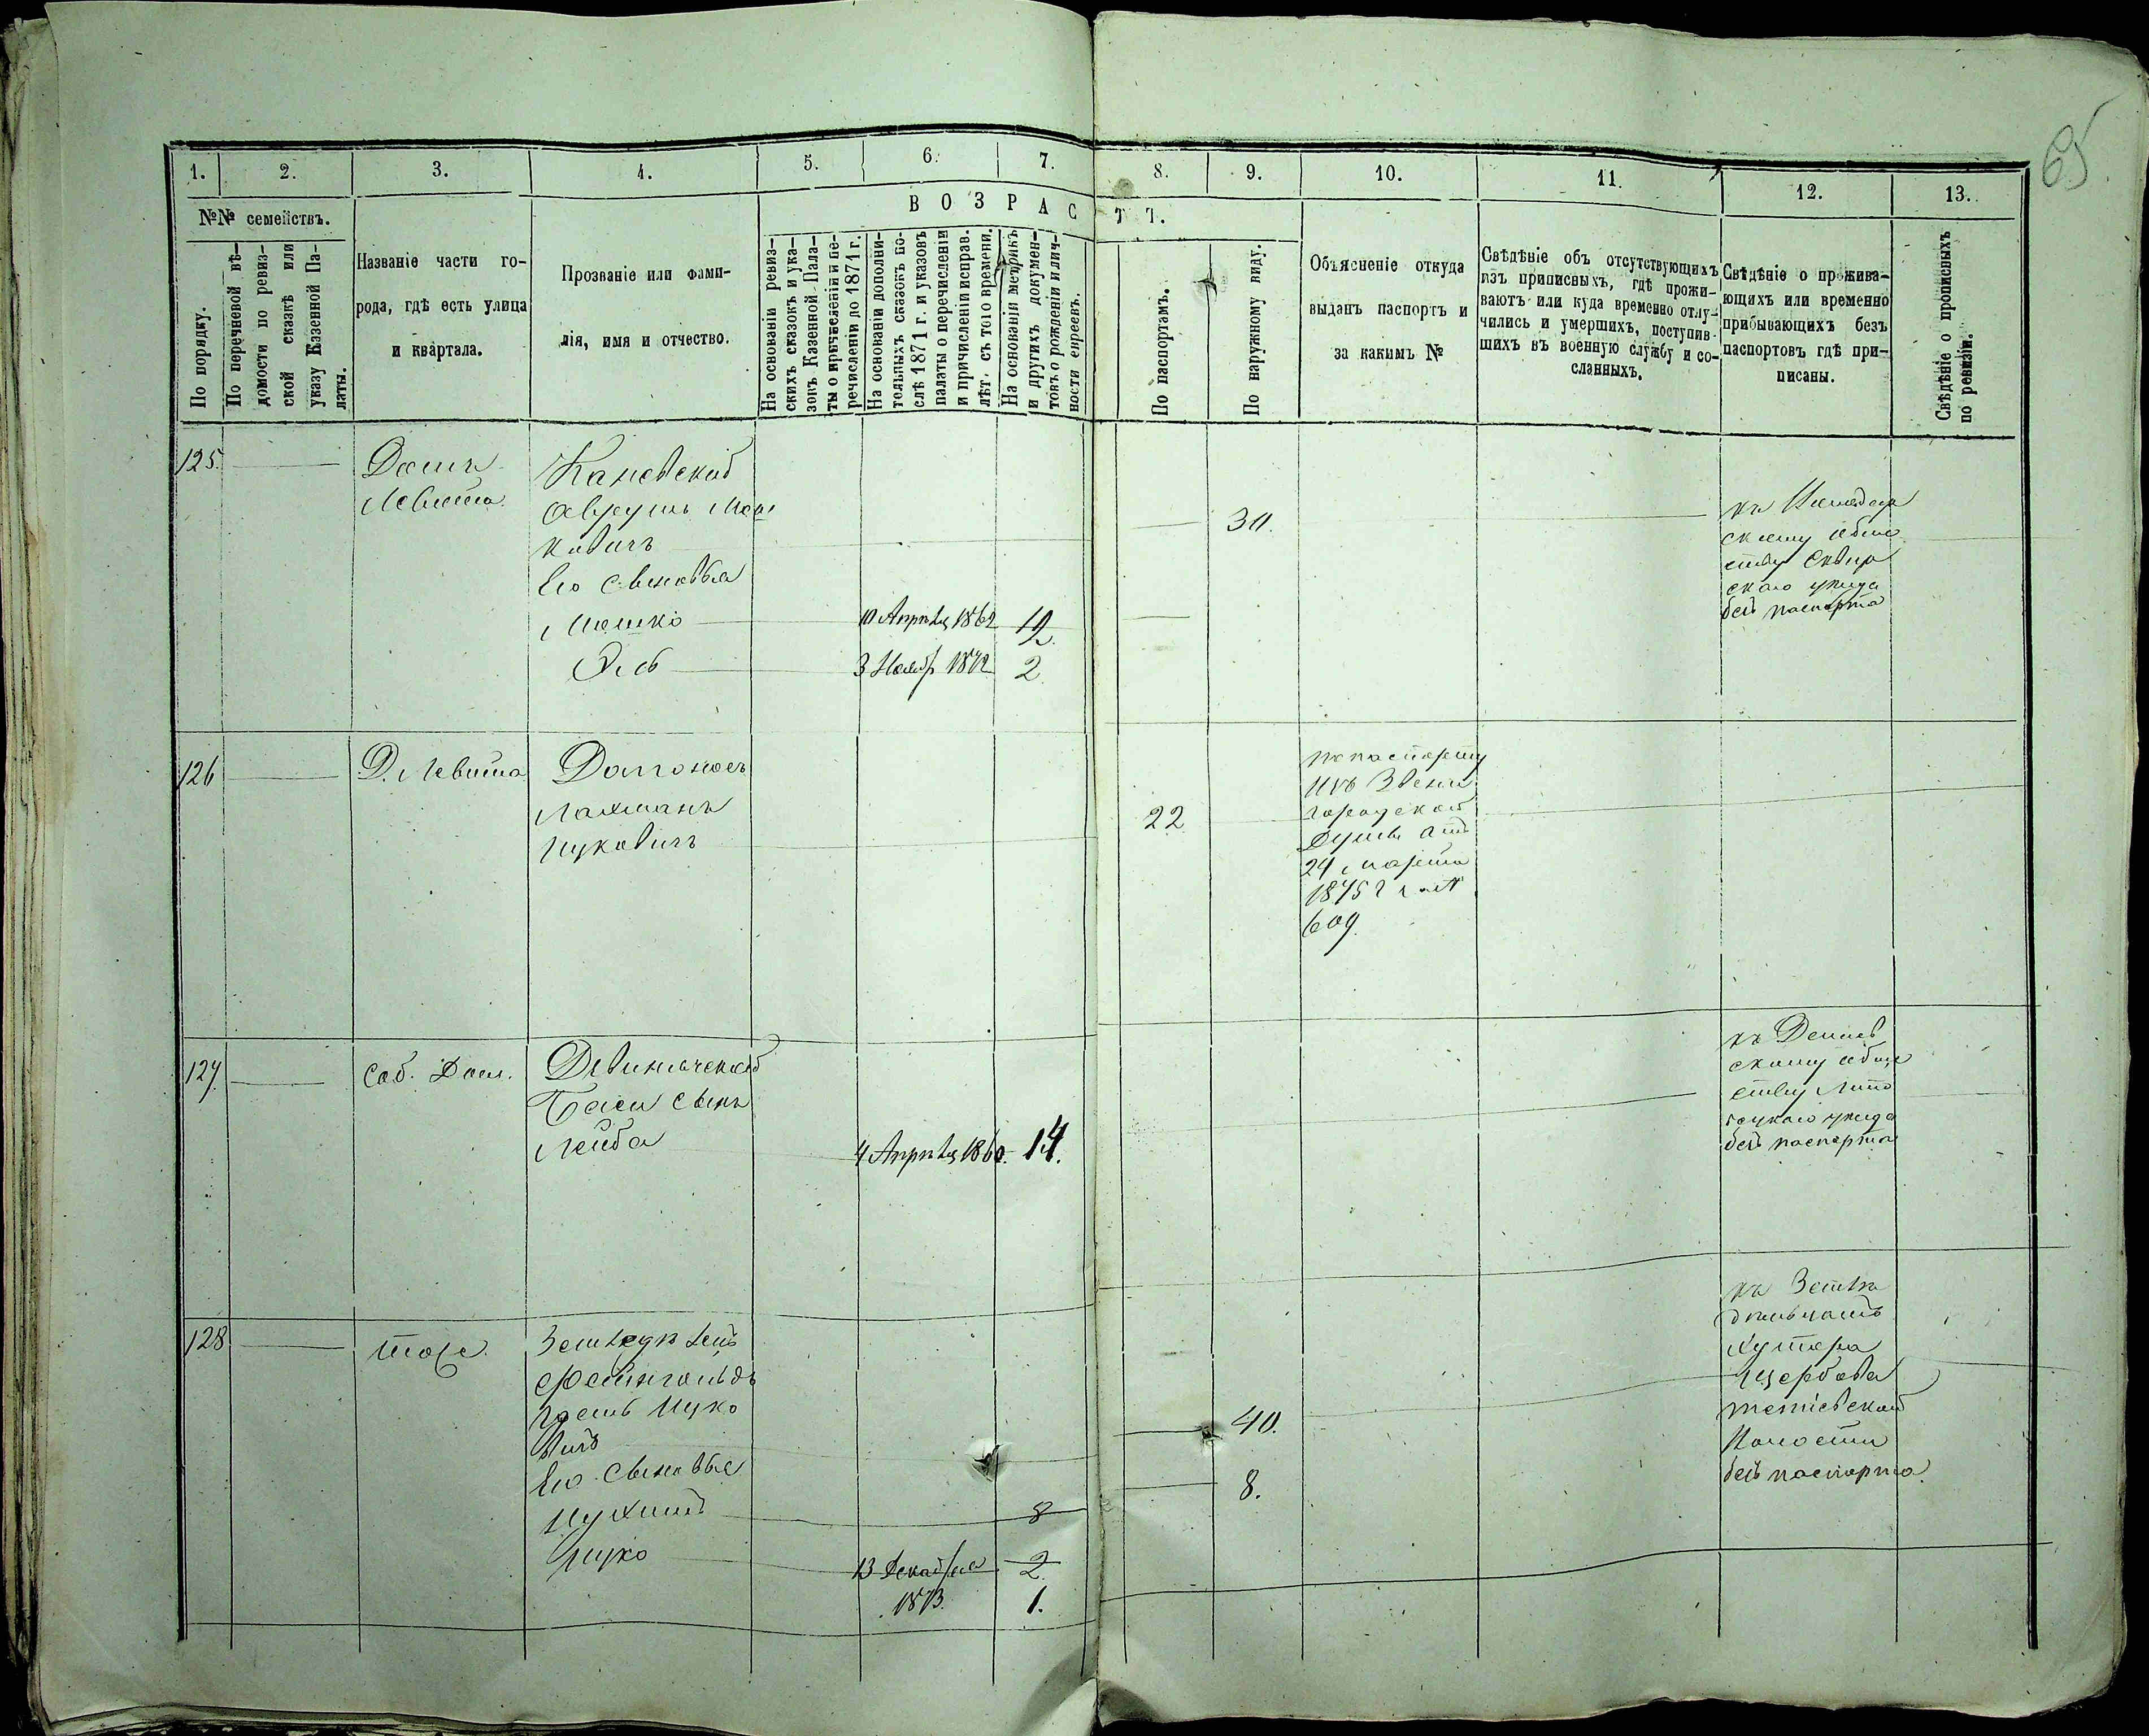 65
1. 2. 3. 4. 5. 6. 7. 8. 9. 10. 11. 12. 13.
№№ семействъ.
По порядку.
По перечневой вѣ-
домости по ревиз-
ской сказкѣ или
указу Казенной Па-
латы.
Названіе части го-
рода, гдѣ есть улица
и квартала.
Прозваніе или фами-
лія, имя и отчество.
ВОЗРАСТЪ.
На основаніи ревиз-
скихъ сказокъ и ука-
зовъ Казенной Пала-
ты о причисленіи и пе-
речисленіи до 1871 г.
На основаніи дополни-
тельныхъ сказокъ по-
слѣ 1871 г. и указовъ
палаты о перечисленіи
и причисленіи исправ.
лѣт. съ того времени.
На основаніи метрикъ
и другихъ докумен-
товъ о рожденіи и лич-
ности евреевъ.
По паспортамъ.
По наружному виду.
Объясненіе откуда
выданъ паспортъ и
за какимъ №
Свѣдѣніе объ отсутствующихъ
изъ приписныхъ, гдѣ прожи-
ваютъ или куда временно отлу-
чились и умершихъ, поступив-
шихъ въ военную службу и со-
сланныхъ.
Свѣдѣніе о прожива-
ющихъ или временно
прибывающихъ безъ
паспортовъ гдѣ при-
писаны.
Свѣдѣніе о прописныхъ
по ревизіи.
125.
Домъ
Левита
Каневскій
Аврумъ Мош
ковичъ
30.
Его сыновья
Мошко 10 Апрѣля 1862 12.
3 Ноябр 1872 2
скому обще
ству Сквир
скаго уезда
безъ паспорта
126
Д. Левита
Долгоносъ
Нахманъ
Ицковичъ
22
по паспорту
изъ Звени
городской
Думы отъ
24 марта
1875 г за №
609.
127.
Соб. Дом.
Баси сынъ
Лейба 4 Апрѣля 1860. 14.
скому обще
ству Липо
вецкаго уезда
безъ паспорта
128
тоже
Земледѣлецъ
Гось Ицко
вичъ
40.
Его сыновья
8
8.
Ицко 13 Декабря 2.
1873. 1.
къ Земле
дѣльчамъ
Хутора
Щербова
Тетіевской
Волости
безъ паспорта.